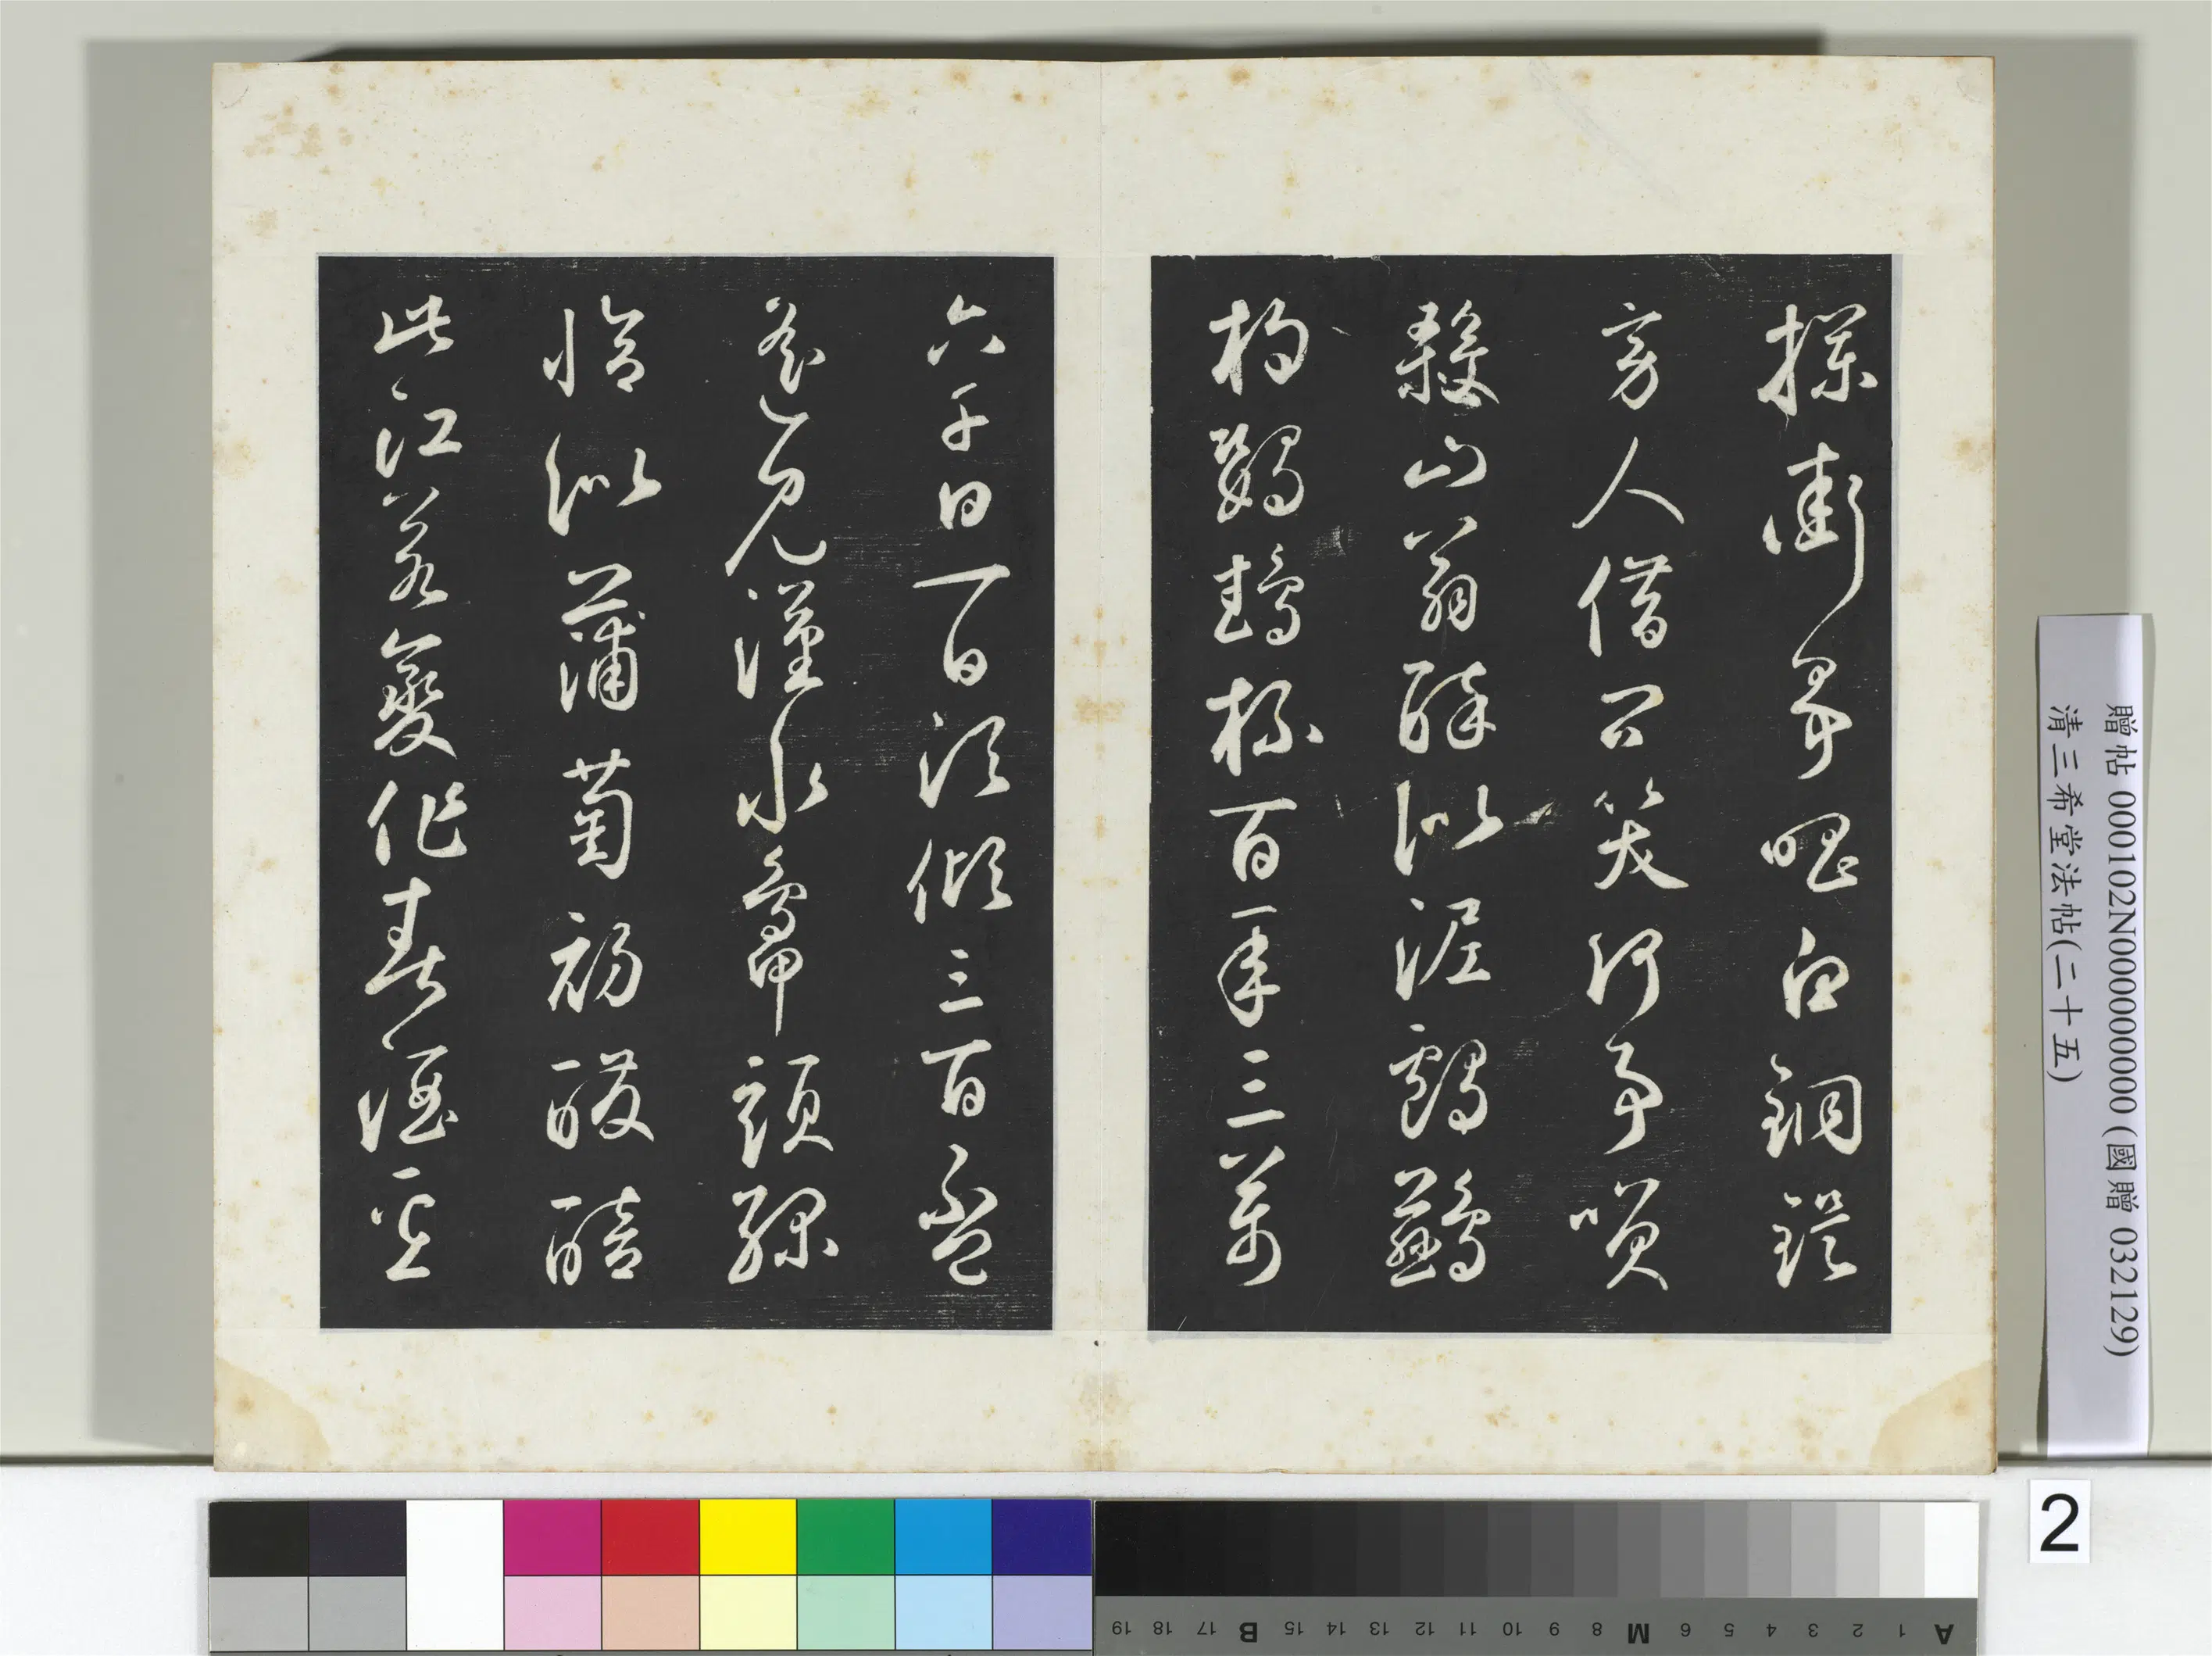 攔街爭唱白銅鍉
旁人借問笑何事咲
殺山翁醉似泥鸕鷀
杓鸚鵡杯百年三萬
六千日一日須傾三百盃
遙見漢水鴨頭綠
恰似蒲萄初醱醅
此江若變作春酒壘
贈帖 000102N000000000 (國贈 032129)
清三希堂法帖(二十五)
2
A 1 2 3 4 5 6 M 8 9 10 11 12 13 14 15 B 17 18 19